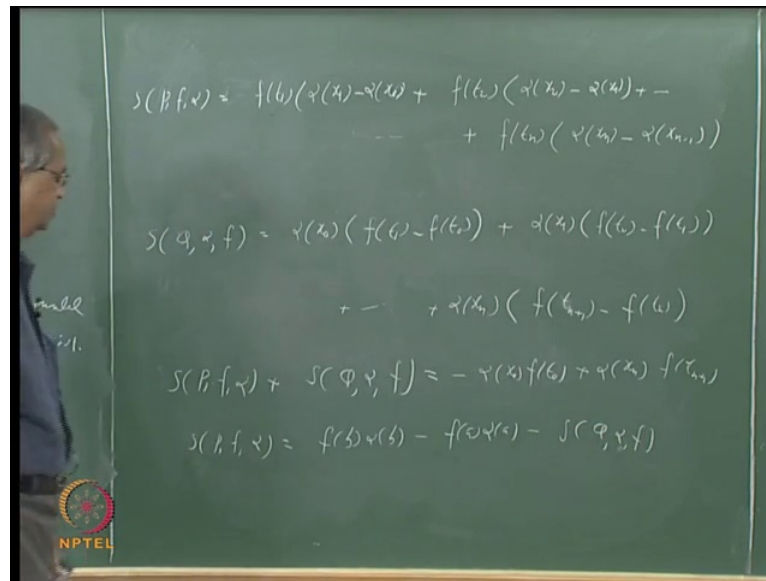 S(P, f, α) = f(t₁)(α(x₁) - α(x₀) + f(t₂)(α(x₂) - α(x₁)) + -
---- + f(tₙ)(α(xₙ) - α(xₙ₋₁))
S(Q, α, f) = α(x₀)(f(t₁) - f(t₀)) + α(x₁)(f(t₂) - f(t₁))
+ -- + α(xₙ)(f(tₙ₊₁) - f(tₙ))
S(P, f, α) + S(Q, α, f) = - α(x₀) f(t₀) + α(xₙ) f(tₙ₊₁)
S(P, f, α) = f(b) α(b) - f(a) α(a) - S(Q, α, f)
NPTEL